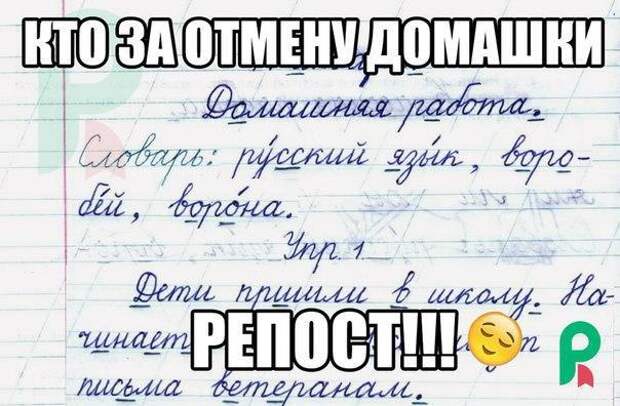 КТО ЗА ОТМЕНУ ДОМАШКИ
Домашняя работа.
Словарь: ру́сский язы́к, воро-
бе́й, воро́на.
Упр. 1
Дети пришли в школу. На-
чинает
РЕПОСТ!!!
письма ветеранам.